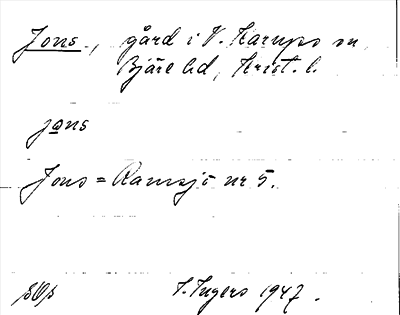 Jons., gård i V. Karups sn,
Bjäre hd, Krist. l.
jons
Jons = Ramsjö nr 5.
I. Ingers 1947.